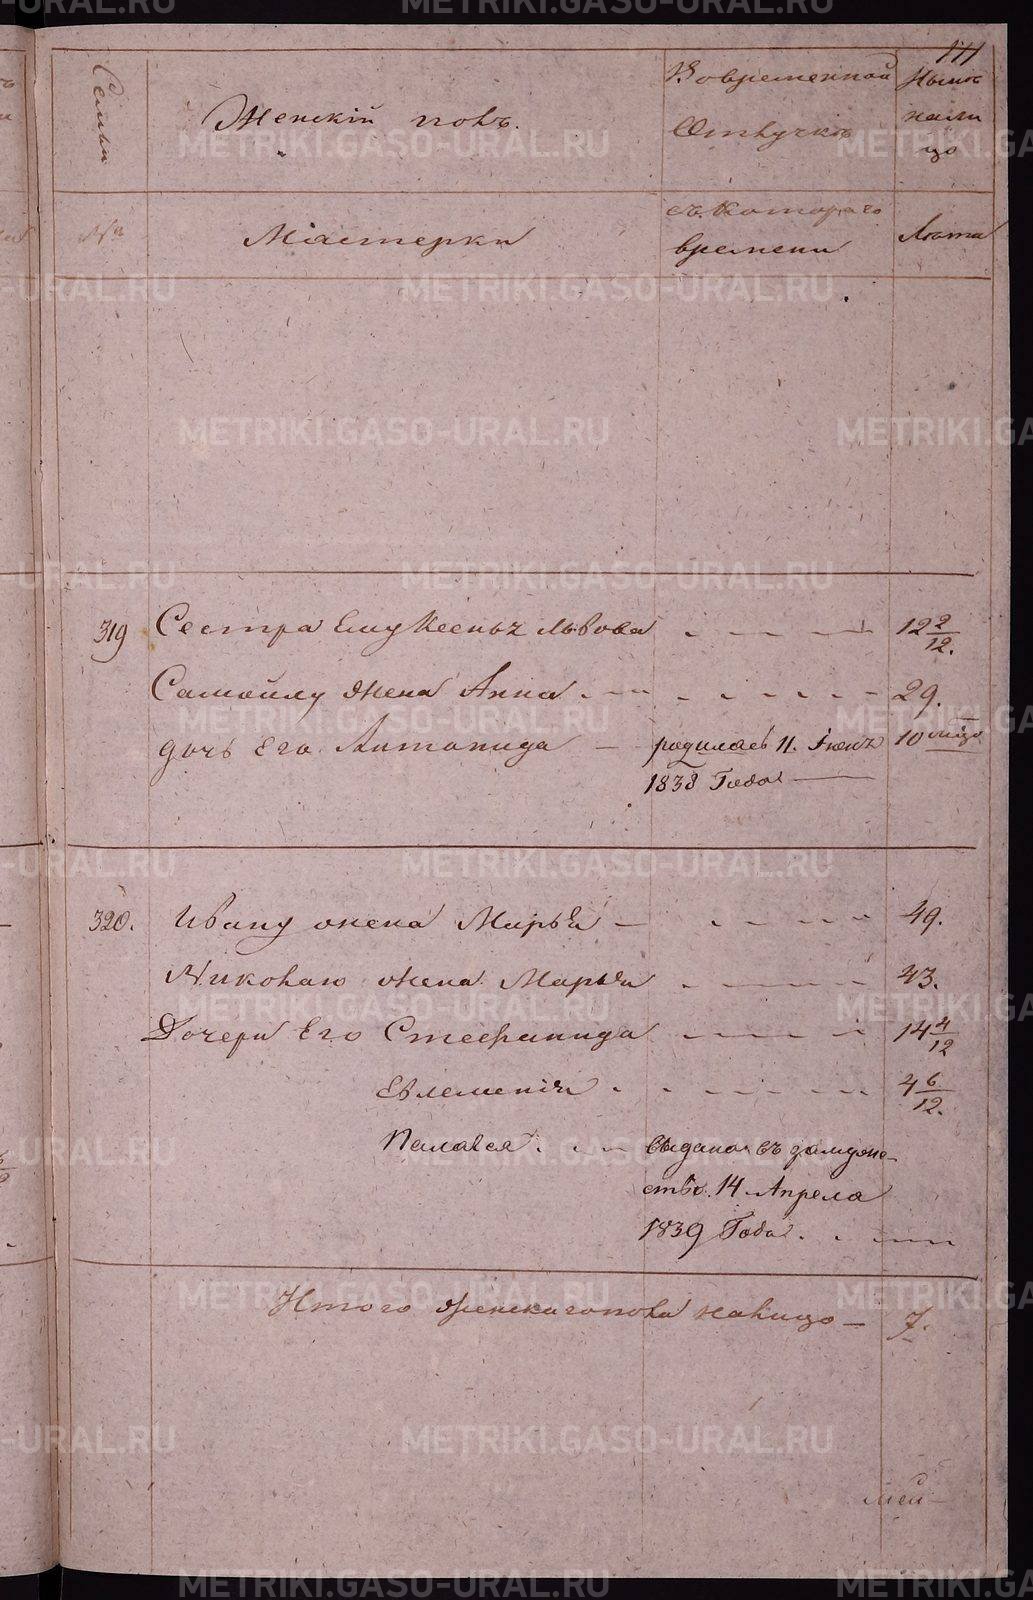 111
Семьи
Женскій полъ.
Вовременной
Отлучкѣ
Нынѣ
нали
цо
№
Мастерки
съ котораго
времени
Лѣта
319 Сестра Ему Ксенья Львова 12 2/12.
Самойлу жена Анна 29.
дочь Его Антонида родилась 11. Іюня 10 мѣсѧ
1838 Года
320. Ивану жена Марья 49.
Николаю жена Марья 43.
Дочери Его Стефанида 14 4/12
Евлеменія 4 6/12.
Палагея выдана въ замуже-
ство. 14 Апреля
1839 Года.
Итого женскаго пола налицо 7.
METRIKI.GASO-URAL.RU